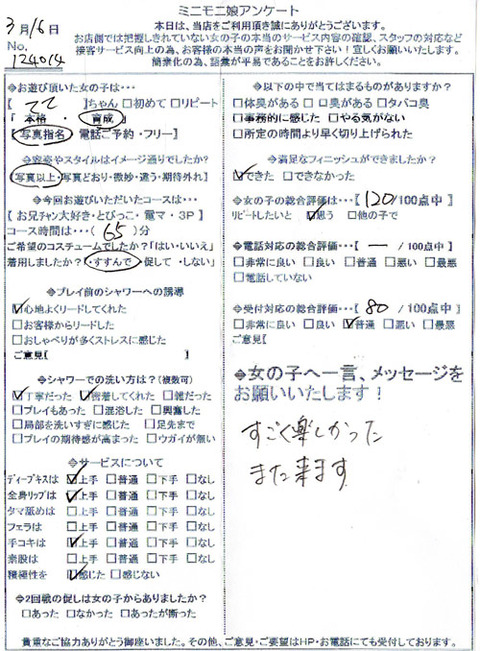 ミニモニ娘アンケート
3月16日
No.
124014
本日は、当店をご利用頂き誠にありがとうございます。
お店側では把握しきれていない女の子の本当のサービス内容の確認、スタッフの対応など
接客サービス向上の為、お客様の本当の声をお聞かせ下さい！宜しくお願いいたします。
簡素化の為、語彙が平易であることをお許しください。
◇お遊び頂いた女の子は…
【 てて 】ちゃん □初めて □リピート
「 本格 ・ 育成 」
『写真指名・電話ご予約・フリー』
◇容姿やスタイルはイメージ通りでしたか？
（写真以上・写真どおり・微妙・違う・期待外れ】
◇今回お遊びいただいたコースは…
【 お兄チャン大好き・とびっこ・電マ・3P 】
コース時間は…( 65 )分
ご希望のコスチュームでしたか？「はい・いいえ」
着用しましたか？「・すすんで・促して・しない」
◇プレイ前のシャワーへの誘導
☑心地よくリードしてくれた
□お客様からリードした
□おしゃべりが多くストレスに感じた
ご意見【 】
◇シャワーでの洗い方は？(複数可)
☑丁寧だった ☑密着してくれた □雑だった
□プレイもあった □混浴した □興奮した
□局部を洗いすぎに感じた □足先まで
□プレイの期待感が高まった □ウガイが無い
◇サービスについて
ディープキスは ☑上手 □普通 □下手 □なし
全身リップは ☑上手 □普通 □下手 □なし
タマ舐めは □上手 □普通 □下手 □なし
フェラは □上手 □普通 □下手 □なし
手コキは ☑上手 □普通 □下手 □なし
素股は □上手 □普通 □下手 □なし
積極性を ☑感じた □感じない
◇2回戦の促しは女の子からありましたか？
□あった □なかった □あったが断った
◇以下の中で当てはまるものがありますか？
□体臭がある □口臭がある □タバコ臭
□事務的に感じた □やる気がない
□所定の時間より早く切り上げられた
◇満足なフィニッシュができましたか？
☑できた □できなかった
◇女の子の総合評価は…【 120/100点中 】
リピートしたいと ☑思う □他の子で
◇電話対応の総合評価…【 ー /100点中 】
□非常に良い □良い □普通 □悪い □最悪
□電話していない
◇受付対応の総合評価…【 80 /100点中 】
□非常に良い □良い ☑普通 □悪い □最悪
ご意見【 】
◇女の子へ一言、メッセージを
お願いいたします！
すごく楽しかった
また来ます
貴重なご協力ありがとう御座いました。その他、ご意見・ご要望はHP・お電話にても受付しております。